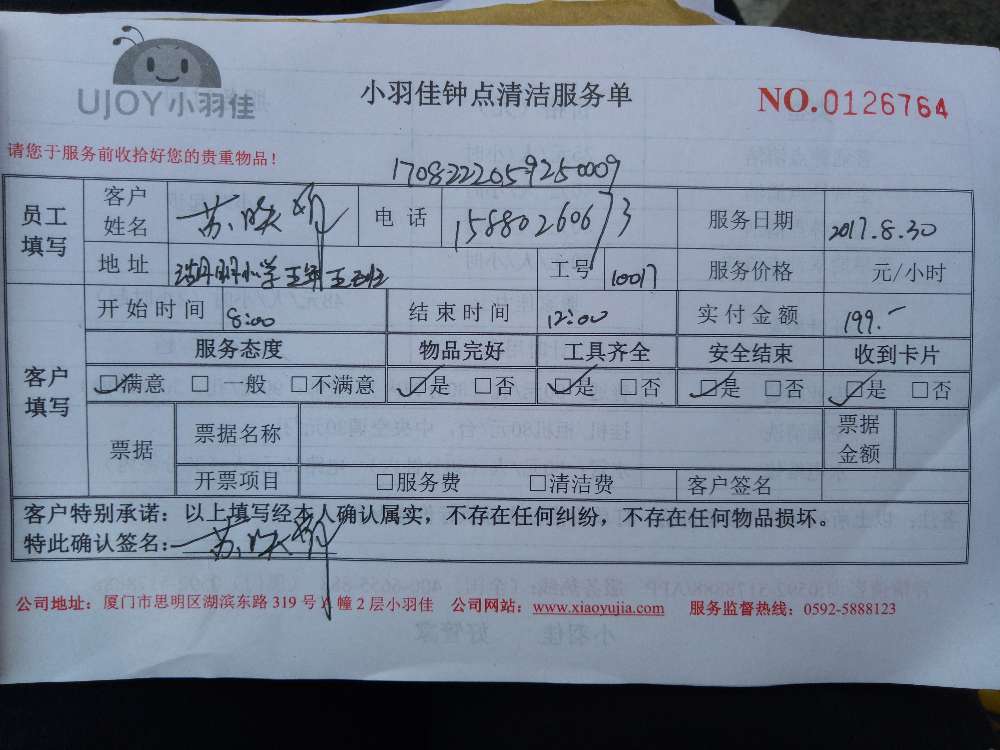 UJOY小羽佳
小羽佳钟点清洁服务单
NO.0126764
请您于服务前收拾好您的贵重物品!
1708222059250009
员工填写 客户姓名 苏 电话 15880260673 服务日期 2017.8.30
地址 小学 工号 10017 服务价格 元/小时
客户填写 开始时间 8:00 结束时间 12:00 实付金额 199.-
服务态度 物品完好 工具齐全 安全结束 收到卡片
☑满意 □一般 □不满意 ☑是 □否 ☑是 □否 ☑是 □否 ☑是 □否
票据 票据名称 票据金额
开票项目 □服务费 □清洁费 客户签名
客户特别承诺:以上填写经本人确认属实,不存在任何纠纷,不存在任何物品损坏。
特此确认签名: 苏
公司地址:厦门市思明区湖滨东路 319 号 A 幢 2 层小羽佳 公司网站:www.xiaoyujia.com 服务监督热线:0592-5888123